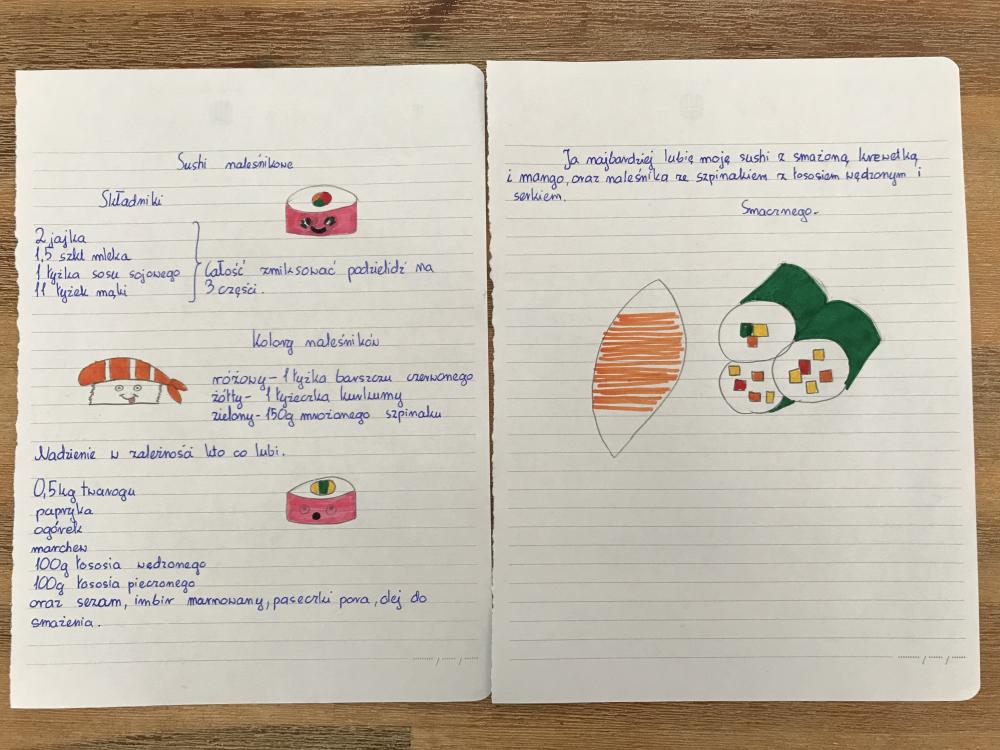 Sushi naleśnikowe
Składniki
2 jajka
1,5 szkl mleka
1 łyżka sosu sojowego
11 łyżek mąki
Całość zmiksować podzielidź na
3 części.
Kolory naleśników
różowy - 1 łyżka barszczu czerwonego
żółty - 1 łyżeczka kurkumy
zielony - 150g mrożonego szpinaku
Nadzienie w zależności kto co lubi.
0,5kg twarogu
papryka
ogórek
marchew
100g łososia wędzonego
100g łososia pieczonego
oraz sezam, imbir marnowany, paseczki pora, olej do
smażenia.
Ja najbardziej lubię moję sushi z smażoną krewetką
i mango, oraz naleśnika ze szpinakiem z łososiem wędzonym i
serkiem.
Smacznego.